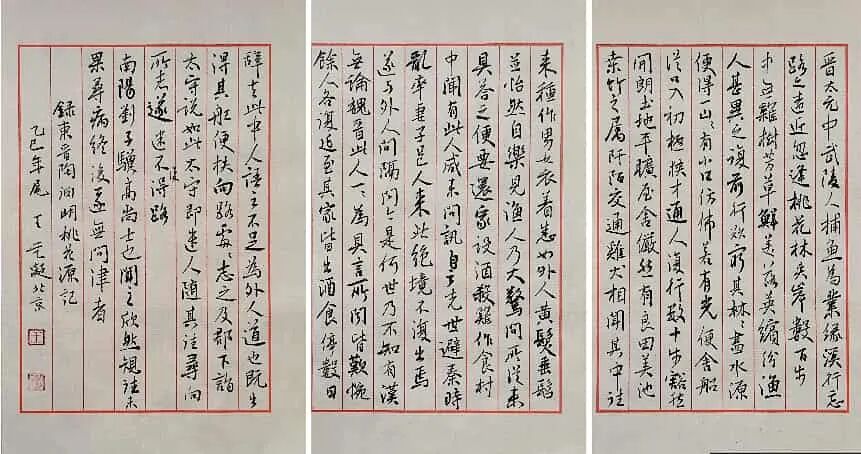 晋太元中武陵人捕魚為業緣溪行忘
路之遠近忽逢桃花林夹岸數百步
中無雜樹芳草鮮美落英繽纷漁
人甚異之復前行欲窮其林〻盡水源
便得一山〻有小口仿佛若有光便舍船
從口入初極狹才通人復行數十步豁然
開朗土地平曠屋舍儼然有良田美池
桑竹之属阡陌交通雞犬相聞其中往
来種作男女衣着悉如外人黄髮垂髫
並怡然自樂見漁人乃大驚問所從来
具答之便要還家設酒殺雞作食村
中聞有此人咸来問訊自云先世避秦時
亂率妻子邑人来此絶境不復出焉
遂与外人間隔問今是何世乃不知有漢
無論魏晋此人一〻為具言所聞皆歎惋
餘人各復延至其家皆出酒食停數日
辭去此中人語云不足為外人道也既出
得其船便扶向路處〻志之及郡下詣
太守說如此太守即遣人随其往尋向
所志遂迷不復得路
南陽劉子驥高尚士也聞之欣然規往未
果尋病終後遂無問津者
録東晋陶渊明桃花源記
乙巳年尾 王 凝北京